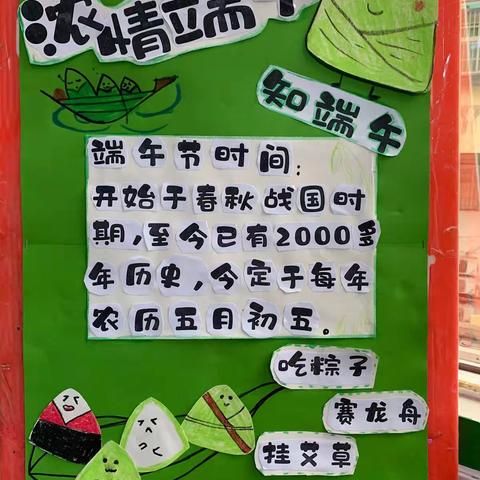 浓情端午
知端午
端午节时间：
开始于春秋战国时
期，至今已有2000多
年历史，今定于每年
农历五月初五。
吃粽子
赛龙舟
挂艾草